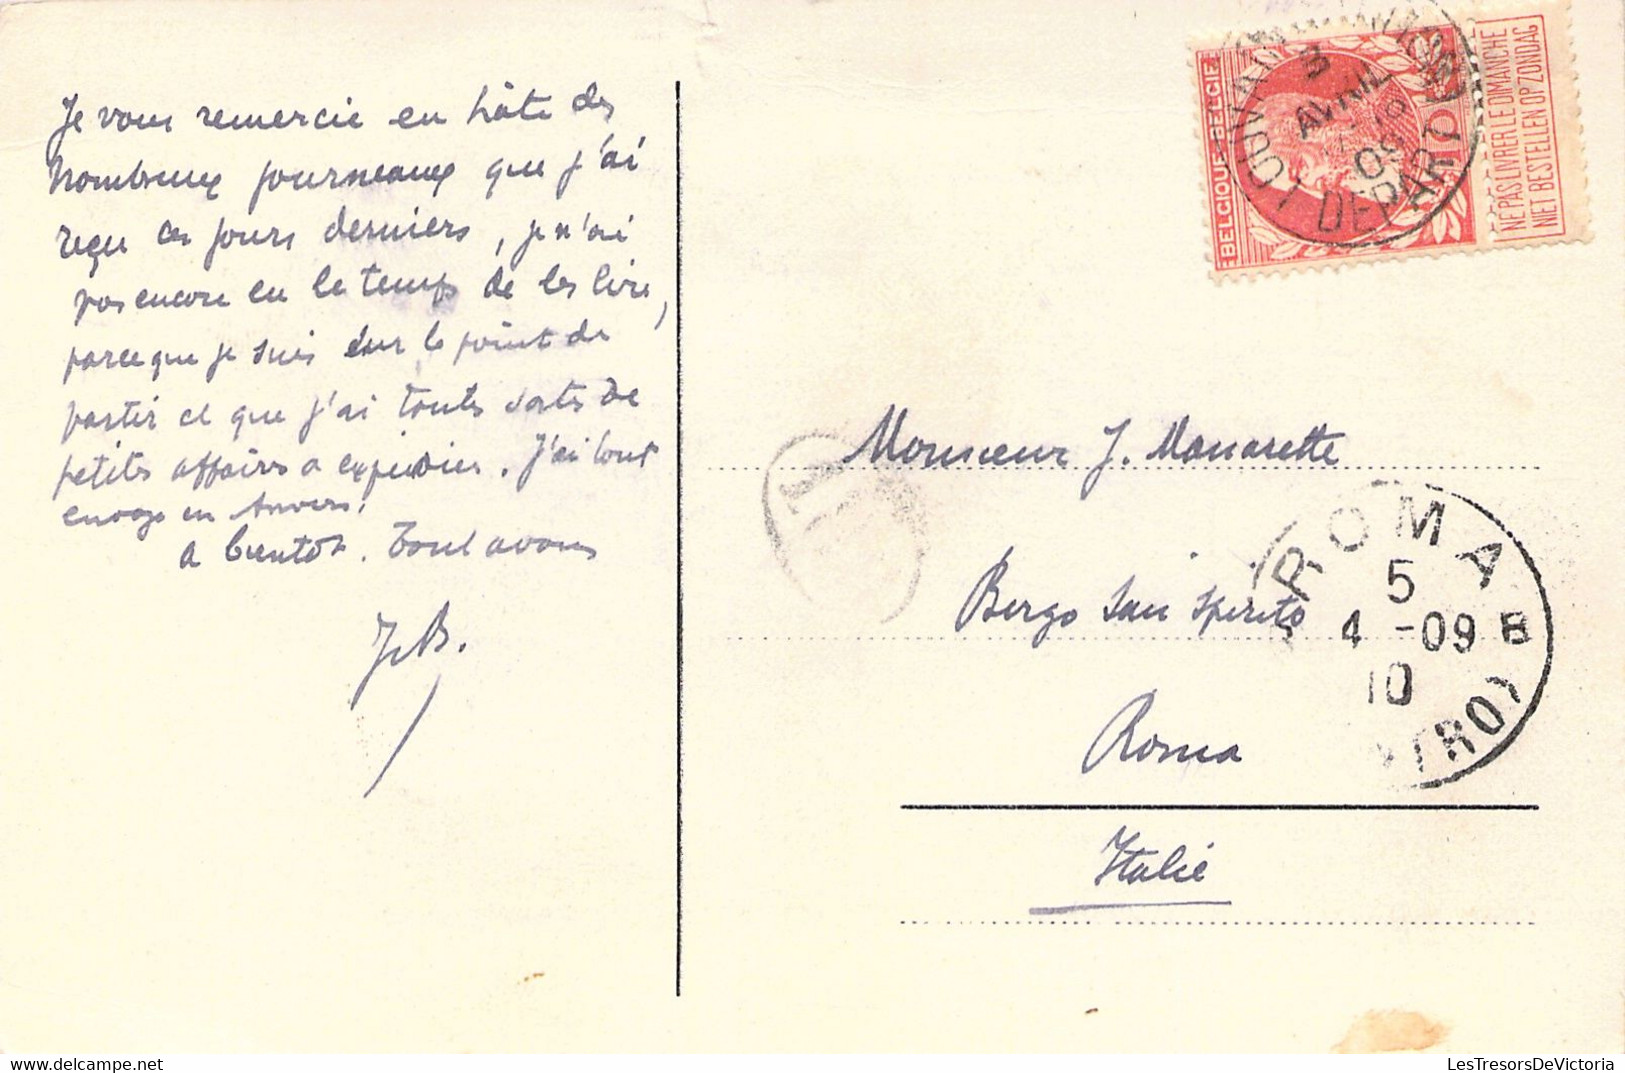 Je vous remercie en hâte des
nombreux journeaux que j'ai
reçu ces jours derniers, je n'ai
pas encore eu le temps de les lire,
parce que je suis sur le point de
partir et que j'ai toutes sortes de
petites affaires a expédier. J'ai tout
envoyé en Anvers!
a bientôt. Tout a vous
J. B.
BELGIQUE-BELGIE
10
NE PAS LIVRER LE DIMANCHE
NIET BESTELLEN OP ZONDAG
LOUVAIN
3
AVRIL
09
DEPART
Monsieur J.
Borgo San Spirito
Roma
Italie
ROMA
5
4 -09
10
LesTresorsDeVictoria